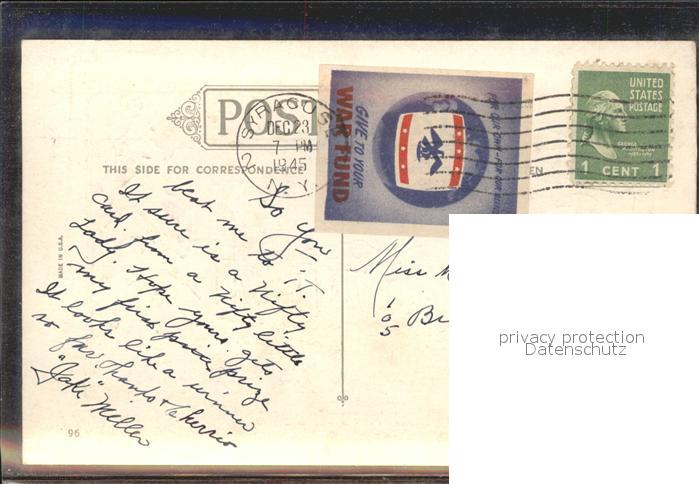 POST
SYRACUSE
2
DEC 23
7 PM
1945
N.Y.
GIVE TO YOUR
WAR FUND
FOR OUR OWN-FOR OUR
UNITED
STATES
POSTAGE
GEORGE
1 CENT 1
THIS SIDE FOR CORRESPONDENCE
EN
MADE IN U.S.A.
So you
beat me to it.
It sure is a nifty
card from a nifty little
lady. Hope yours gets
my first pin prize
It looks like a winner
so far. Thanks + Cheerio
"Jake" Meller
96
Miss M
105 Br
privacy protection
Datenschutz